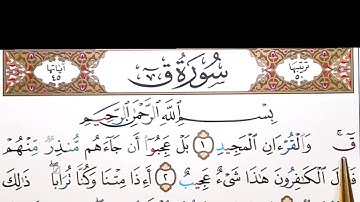 ترتيبها ٥٠
سُورَةُ قٓ
آياتها ٤٥
بِسْمِ اللَّهِ الرَّحْمَٰنِ الرَّحِيمِ
قٓ ۚ وَالْقُرْءَانِ الْمَجِيدِ ١ بَلْ عَجِبُوٓا۟ أَن جَآءَهُم مُّنذِرٌ مِّنْهُمْ
فَقَالَ الْكَٰفِرُونَ هَٰذَا شَىْءٌ عَجِيبٌ ٢ أَءِذَا مِتْنَا وَكُنَّا تُرَابًا ۖ ذَٰلِكَ